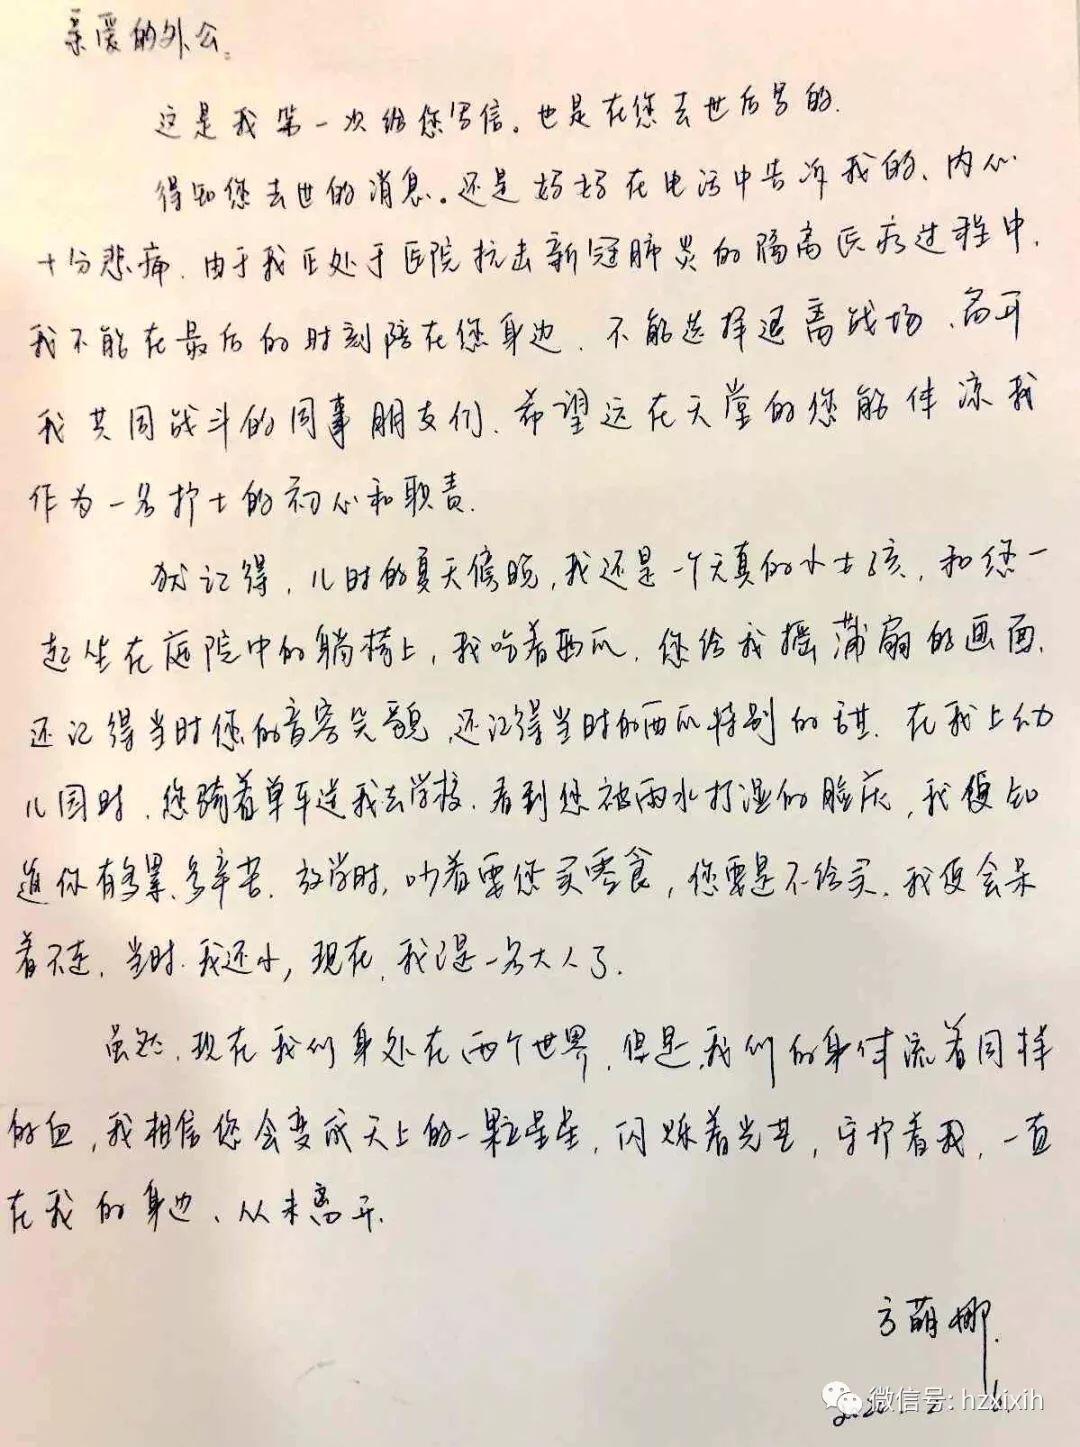 亲爱的外公:
这是我第一次给您写信。也是在您去世后写的.
得知您去世的消息。还是妈妈在电话中告诉我的、内心
十分悲痛.由于我正处于医院抗击新冠肺炎的隔离医疗过程中.
我不能在最后的时刻陪在您身边.不能选择退离战场、离开
我共同战斗的同事朋友们.希望远在天堂的您能体凉我
作为一名护士的初心和职责.
犹记得,儿时的夏天傍晚,我还是一个天真的小女孩,和您一
起坐在庭院中的躺椅上,我吃着西瓜.您给我摇蒲扇的画面.
还记得当时您的音容笑貌.还记得当时的西瓜特别的甜.在我上幼
儿园时.您骑着单车送我去学校.看到您被雨水打湿的脸庞,我便知
道你有多累、多辛苦.放学时,吵着要您买零食,您要是不给买.我便会呆
着不走.当时.我还小,现在,我已是一名大人了.
虽然.现在我们身处在两个世界.但是,我们的身体流着同样
的血,我相信您会变成天上的一颗星星,闪烁着光芒,守护着我,一直
在我的身边、从未离开.
方萌娜.
微信号: hzxixih